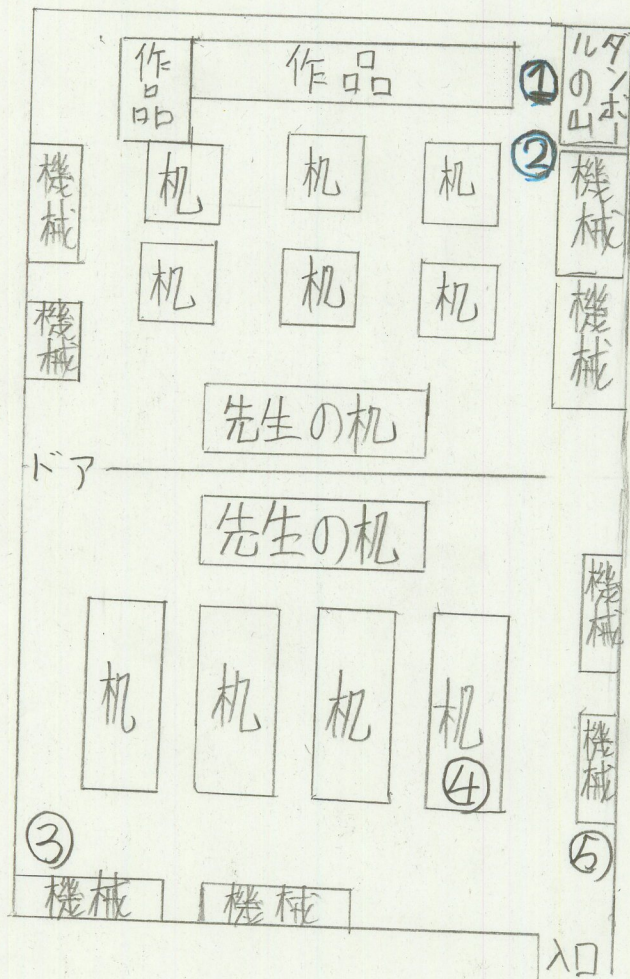 作品
作品
①
ダンボー
ルの山
②
機械
机
机
机
機械
机
机
机
機械
機械
先生の机
ドア
先生の机
機械
机
机
机
机
④
機械
③
⑤
機械
機械
入口